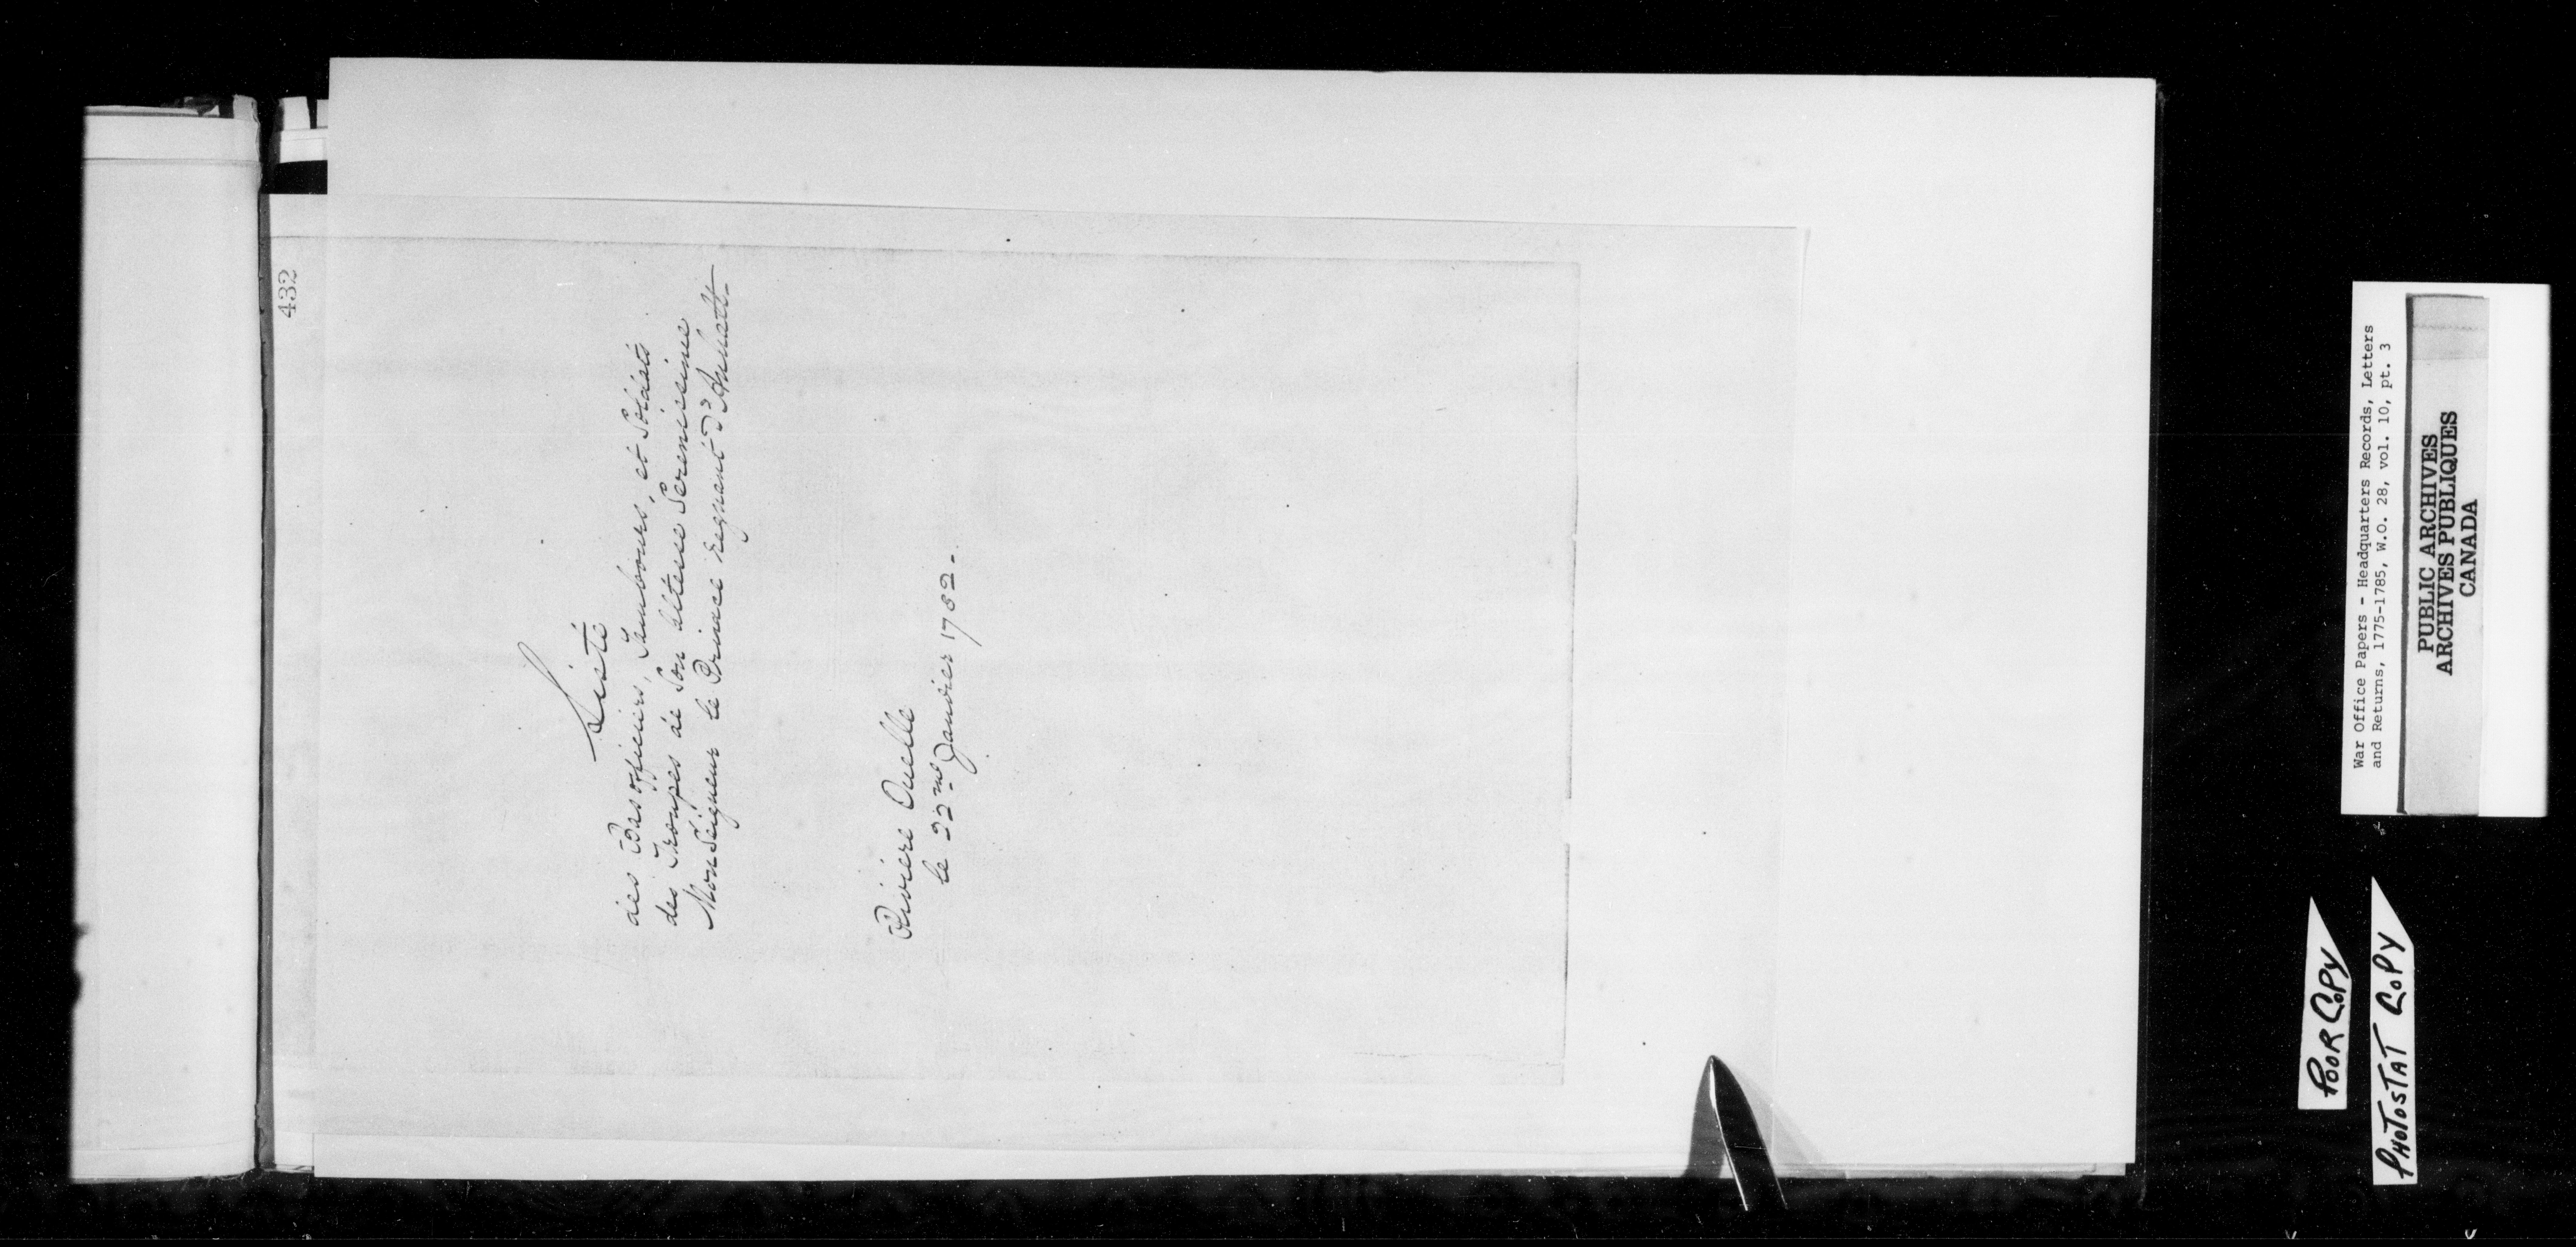 432
Liste
des Bas officiers, Tambours, et Soldats
des Troupes de Son Altesse Serenissime
Mon Seigneur le Prince Regnant d'Anhalt-
Riviere Ouelle
le 22me Janvier 1782.
War Office Papers - Headquarters Records, Letters
and Returns, 1775-1785, W.O. 28, vol. 10, pt. 3
PUBLIC ARCHIVES
ARCHIVES PUBLIQUES
CANADA
POOR COPY
PHOTOSTAT COPY